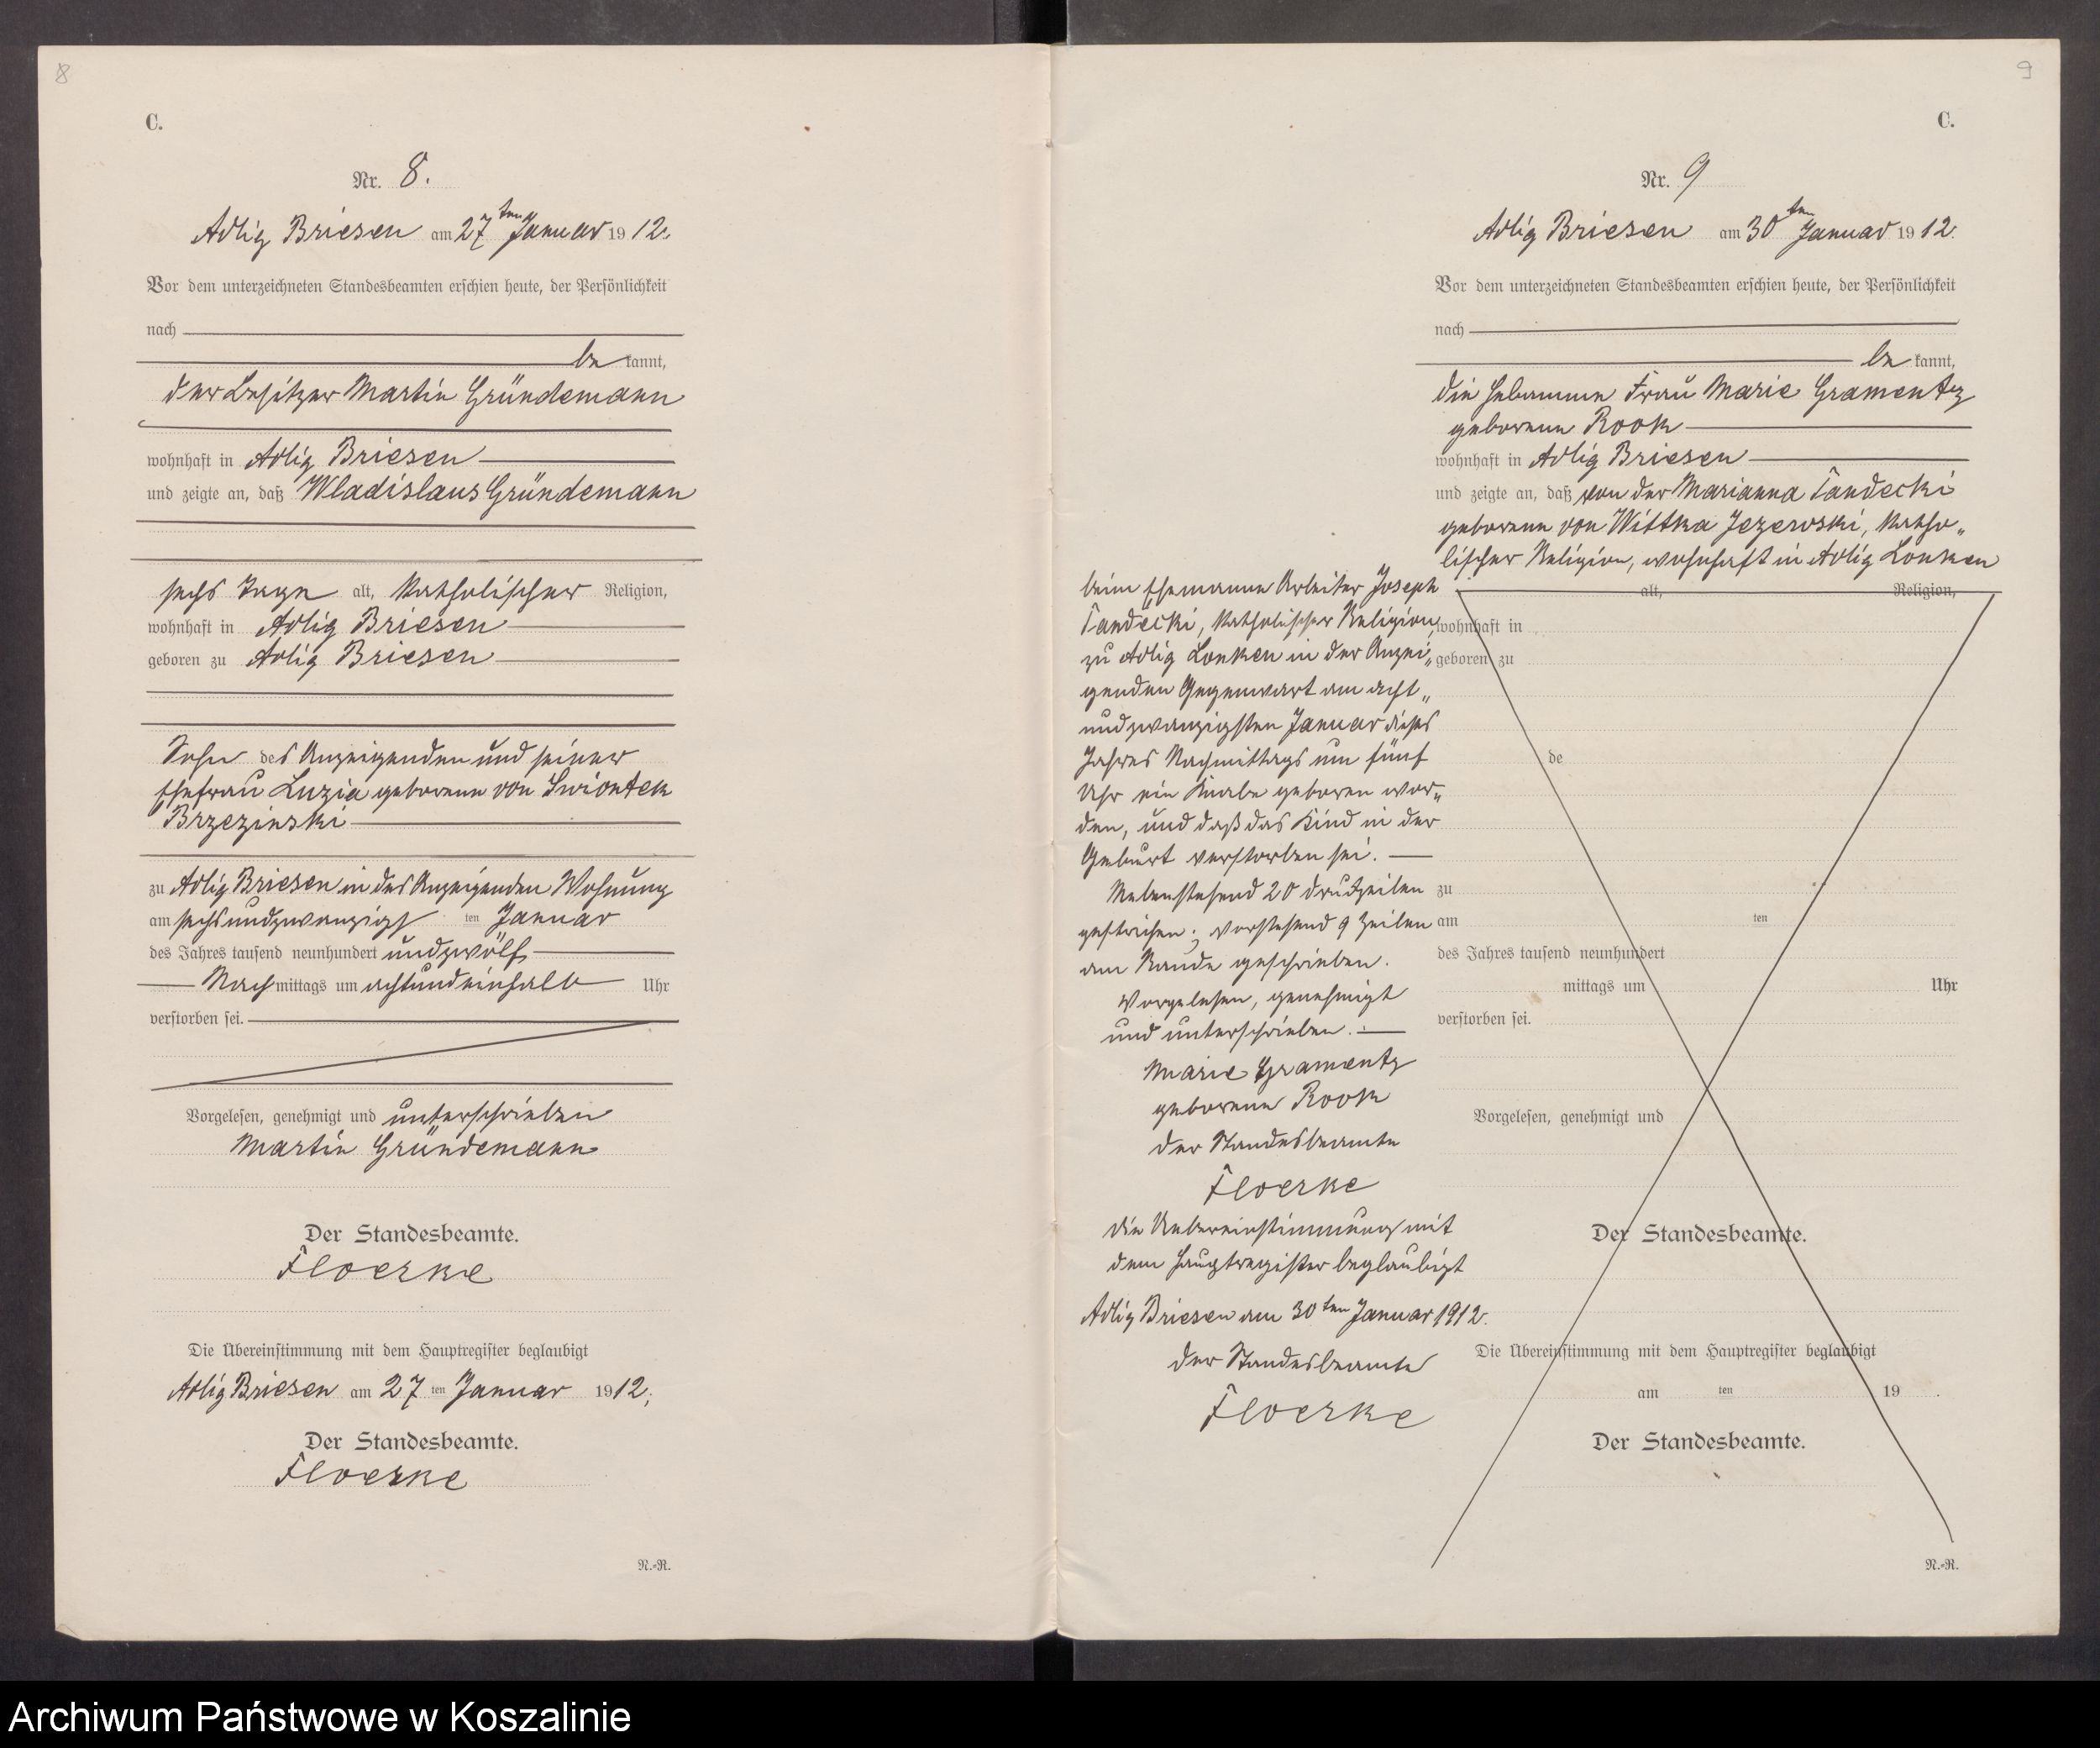 8
C.
Nr. 8.
Adlig Briesen am 27ten Januar 1912.
Vor dem unterzeichneten Standesbeamten erschien heute, der Persönlichkeit
nach
be kannt,
der Besitzer Martin Gründemann
wohnhaft in Adlig Briesen
und zeigte an, daß Wladislaus Gründemann
sechs Tage alt, katholischer Religion,
wohnhaft in Adlig Briesen
geboren zu Adlig Briesen
Sohn des Anzeigenden und seiner
Ehefrau Luzia geborene von Swiontek
Brzezinski
zu Adlig Briesen in des Anzeigenden Wohnung
am sechsundzwanzigs ten Januar
des Jahres tausend neunhundert und zwölf
Nach mittags um achtundeinhalb Uhr
verstorben sei.
Vorgelesen, genehmigt und unterschrieben
Martin Gründemann
Der Standesbeamte.
Floerke
Die Übereinstimmung mit dem Hauptregister beglaubigt
Adlig Briesen am 27 ten Januar 1912.
Der Standesbeamte.
Floerke
N.-R.
9
C.
Nr. 9
Adlig Briesen am 30ten Januar 1912.
Vor dem unterzeichneten Standesbeamten erschien heute, der Persönlichkeit
nach
be kannt,
die Hebamme Frau Marie Gramentz
geborene Rook
wohnhaft in Adlig Briesen
und zeigte an, daß von der Marianna Tandecki
geborene von Wittka Jezerski, katho„
lischer Religion, wohnhaft in Adlig Lonken
beim Ehemanne Arbeiter Joseph
Tandecki, katholischer Religion,
zu Adlig Lonken in der Anzei„
genden Gegenwart am acht„
undzwanzigsten Januar dieses
Jahres Nachmittags um fünf
Uhr ein Knabe geboren wor„
den, und daß das Kind in der
Geburt verstorben sei.
Nebenstehend 20 Druckzeilen
gestrichen; vorstehend 9 Zeilen
am Rande geschrieben.
Vorgelesen, genehmigt
und unterschrieben.
Marie Gramentz
geborene Rook
der Standesbeamte
Floerke
die Uebereinstimmung mit
dem Hauptregister beglaubigt
Adlig Briesen am 30ten Januar 1912.
der Standesbeamte
Floerke
alt, Religion,
wohnhaft in
geboren zu
de
zu
am ten
des Jahres tausend neunhundert
mittags um Uhr
verstorben sei.
Vorgelesen, genehmigt und
Der Standesbeamte.
Die Übereinstimmung mit dem Hauptregister beglaubigt
am ten 19 .
Der Standesbeamte.
N.-R.
Archiwum Państwowe w Koszalinie